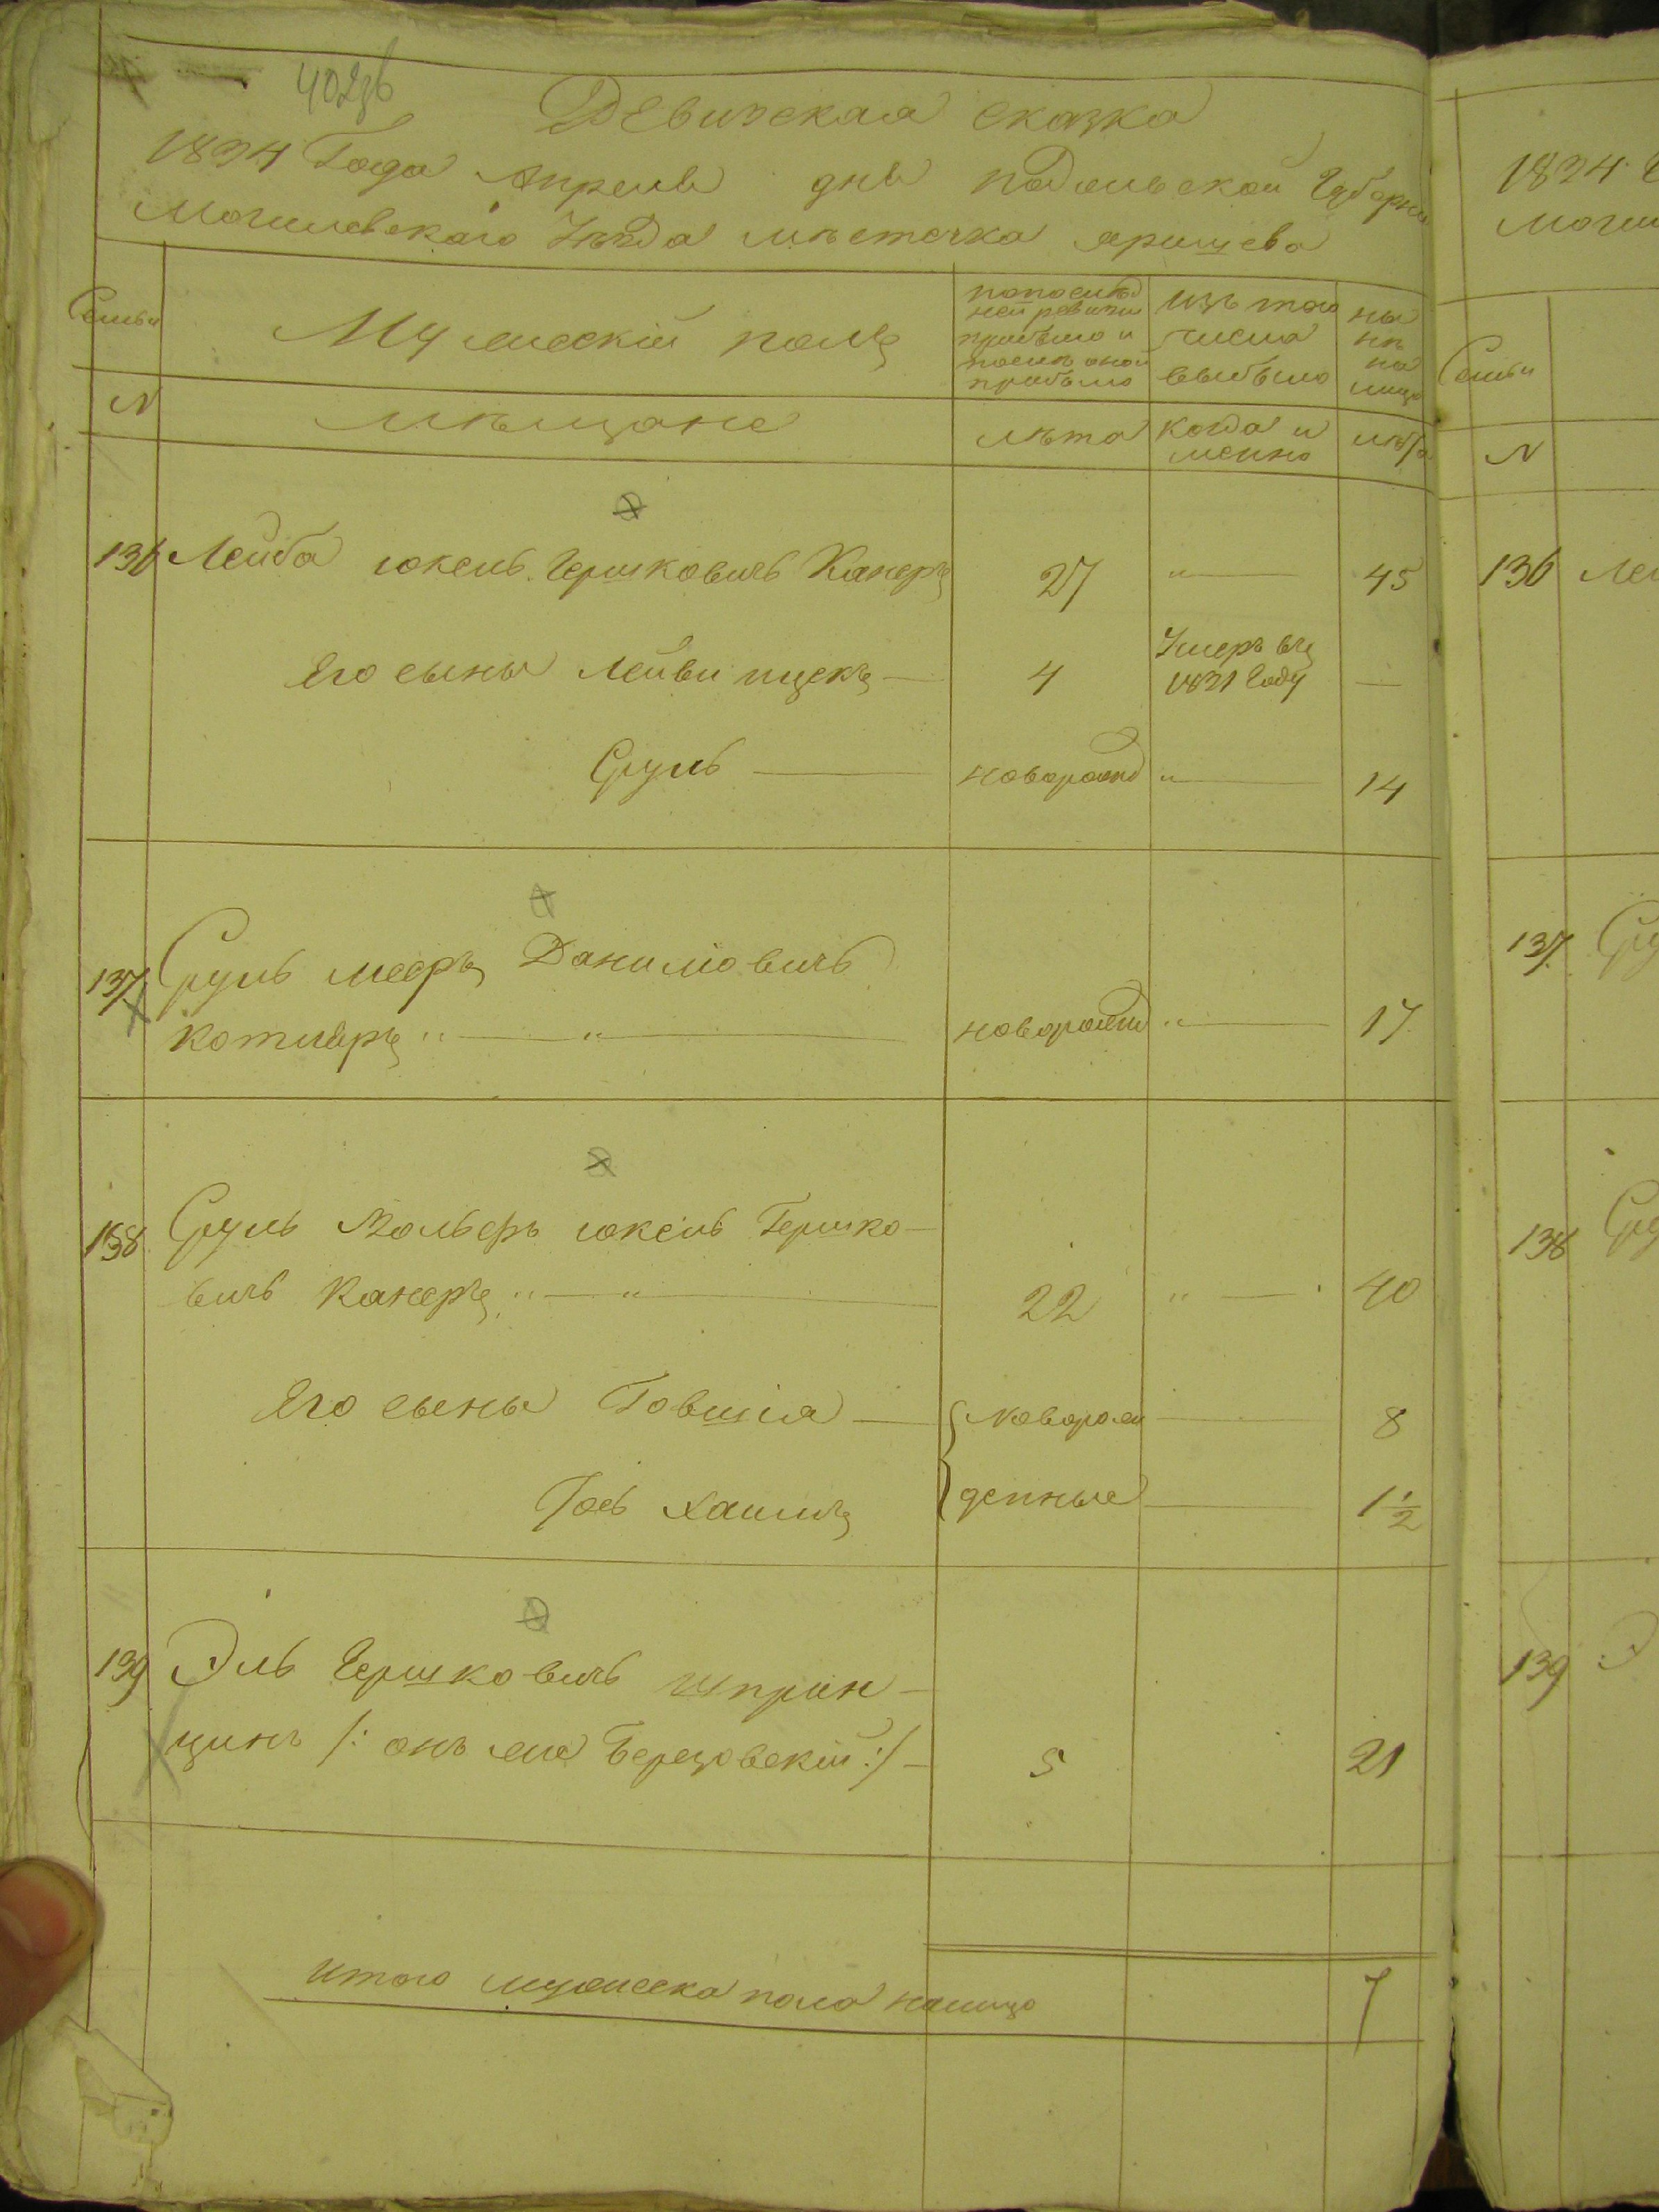 402об
Ревизская сказка
1834 Года Апреля дня Подольской Губернiи
Могилевскаго Уѣзда мѣстечка Яришева
Семьи
Мужескiй полъ
попослѣд
ней ревизiи
состояло и
послѣ оной
прибыло
изъ того
числа
выбыло
ны
нѣ
на
лицо
N
мѣщане
лѣта
когда и
менно
лѣта
136 Лейба Юкель Гершковичъ Канеръ 27 „ — 45
Его сыны Лейви Ицекъ — 4 Умеръ въ 1831 Году —
Сруль — новорожд „ — 14
137 Сруль Мееръ Данилiовичъ
Котляръ „ — „ — новорожд „ — 17
138 Сруль Вольфъ Юкель Гершко-
вичъ Канеръ „ — „ — 22 „ — 40
Его сыны Говшiя — новорож — 8
Іось Хаимъ денные — 1 1/2
139 Эль Гершковичъ Шприн-
цинъ /: онъ же Березовскiй :/ — 5 21
Итого мужеска пола налицо 7
1834 Г
Могил
Семьи
N
136 Лей
137 Сру
138 Сру
139 Э